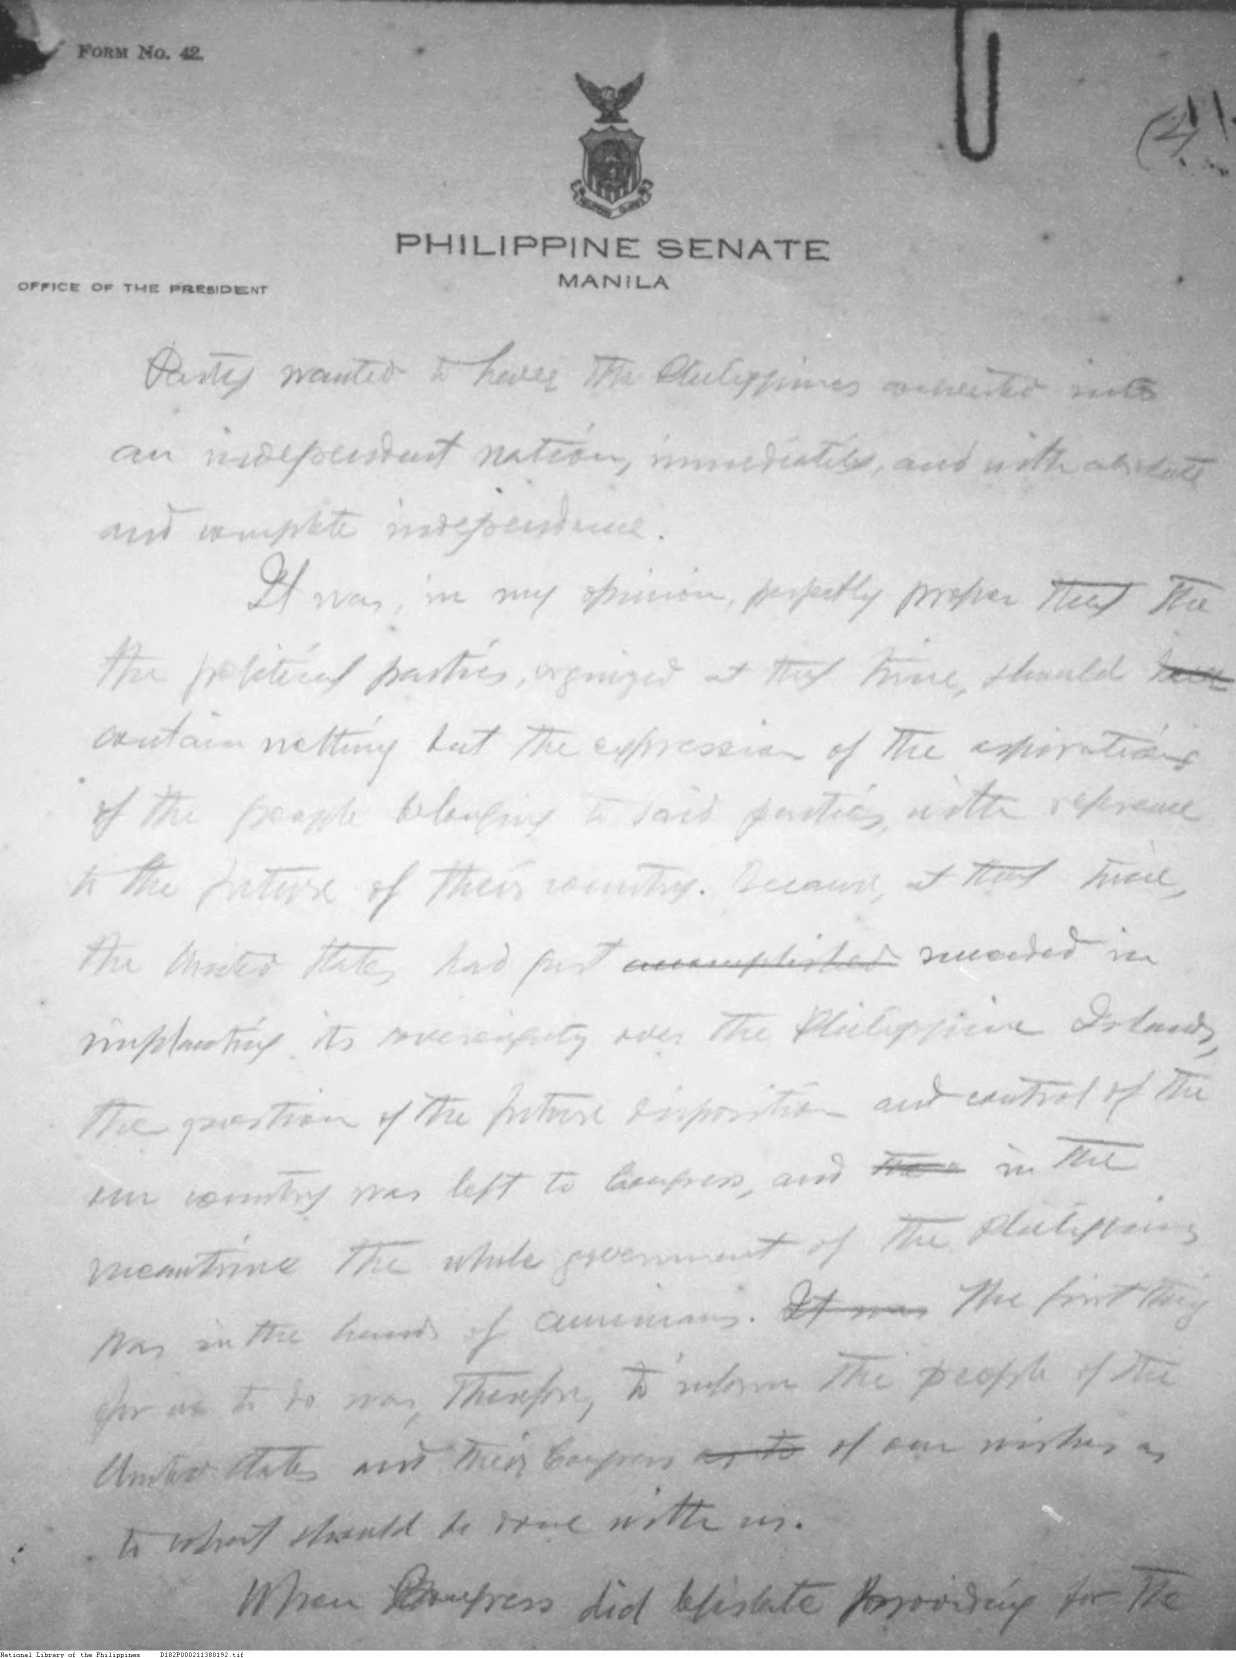 FORM NO. 42.
(4)
PHILIPPINE SENATE
MANILA
OFFICE OF THE PRESIDENT
Party wanted to have the Philippines converted into
an independent nation, immediately, and with absolute
and complete independence.
It was, in my opinion, perfectly proper that the
the political parties, organized at that time, should have
contain nothing but the expression of the aspirations
of the people belonging to said parties, with reference
to the future of their country. Because, at that time,
the United States, had just accomplished succeeded in
implanting its sovereignty over the Philippine Islands,
the question of the future disposition and control of the
our country was left to Congress, and in the
meantime the whole government of the Philippines
was in the hands of Americans. It was The first thing
for us to do was, therefore, to inform the people of the
United States and their Congress as to of our wishes as
to what should be done with us.
When Congress did legislate providing for the
National Library of the Philippines D182P000211380192.tif